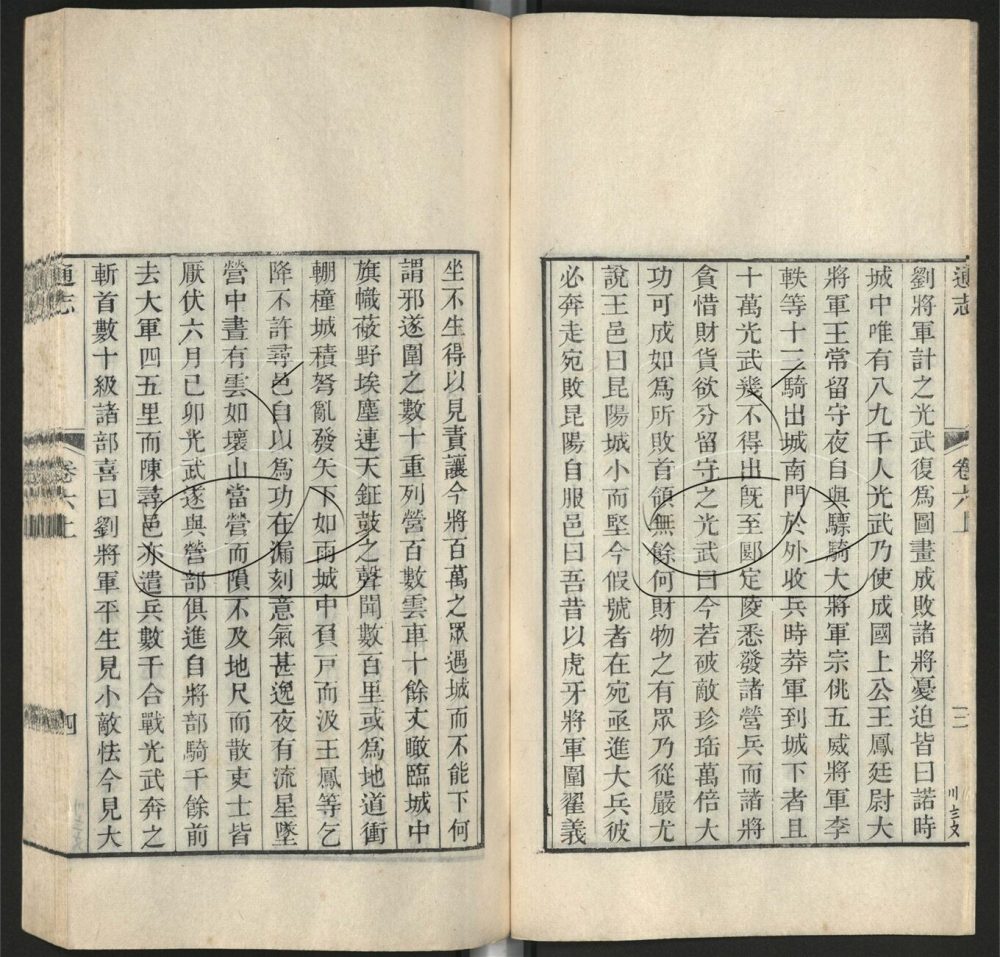 通志
卷六上
三
川三文
劉將軍計之光武復爲圖畫成敗諸將憂迫皆曰諾時
城中唯有八九千人光武乃使成國上公王鳳廷尉大
將軍王常留守夜自與驃騎大將軍宗佻五威將軍李
軼等十三騎出城南門於外收兵時莽軍到城下者且
十萬光武幾不得出旣至郾定陵悉發諸營兵而諸將
貪惜財貨欲分留守之光武曰今若破敵珍珤萬倍大
功可成如爲所敗首領無餘何財物之有眾乃從嚴尤
說王邑曰昆陽城小而堅今假號者在宛亟進大兵彼
必奔走宛敗昆陽自服邑曰吾昔以虎牙將軍圍翟義
坐不生得以見責讓今將百萬之眾遇城而不能下何
謂邪遂圍之數十重列營百數雲車十餘丈瞰臨城中
旗幟蔽野埃塵連天鉦鼓之聲聞數百里或爲地道衝
輣橦城積弩亂發矢下如雨城中負戸而汲王鳳等乞
降不許尋邑自以爲功在漏刻意氣甚逸夜有流星墜
營中晝有雲如壞山當營而隕不及地尺而散吏士皆
厭伏六月己卯光武遂與營部俱進自將部騎千餘前
去大軍四五里而陳尋邑亦遣兵數千合戰光武奔之
斬首數十級諸部喜曰劉將軍平生見小敵怯今見大
通志
卷六上
四